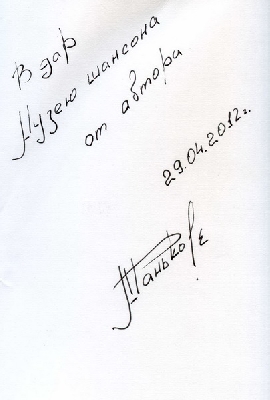 В дар
Музею шансона
от автора
29.04.2012г.